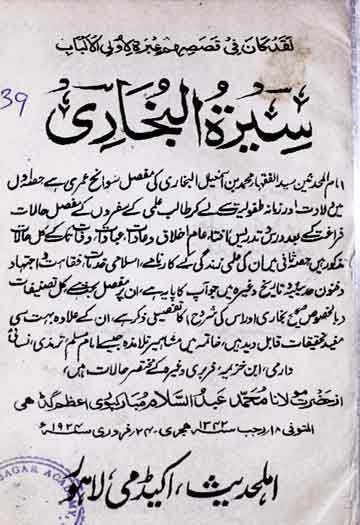 لقد كان في قصصهم عبرة لاولى الالباب
39
سِيرَةُ البُخَارِی
امام المحدثین سید الفقہاء محمد بن اسمٰعیل البخاری کی مفصل سوانح عمری ہے حصہ اول
میں ولادت اور زمانہ طفولیت سے لے کر طالب علمی کے سفروں کے مفصل حالات
فراغت کے بعد درس و تدریس کا افتاء عام اخلاق و عادات، عبادات، وفات تک کے کل حالات
مذکور ہیں حصہ ثانی میں ان کی علمی زندگی کے کارنامے، اسلامی خدمات، فقاہت و اجتہاد
و فنون حدیث و تاریخ وغیرہ میں جو آپ کا پایہ ہے، ان پر مفصل بحث ہے کل تصنیفات
(بالخصوص صحیح بخاری اور اس کی شروح) کا تفصیلی ذکر ہے، ان کے علاوہ بہت سی
مفید تحقیقات قابل دید ہیں، خاتمہ میں مشاہیر تلامذہ جیسے امام مسلم، ترمذی، نسائی
دارمی، ابن خزیمہ، فربری وغیرہ کے مختصر حالات ہیں،
از حضرت مولانا محمد عبد السلام مبارکپوری اعظم گڈھی
المتوفی ۱۸ رجب ۱۳۴۲ ہجری ۔ ۲۴ فروری ۱۹۲۴ء
اہلحدیث، اکیڈمی، لاہور
SAGAR ACADEMY